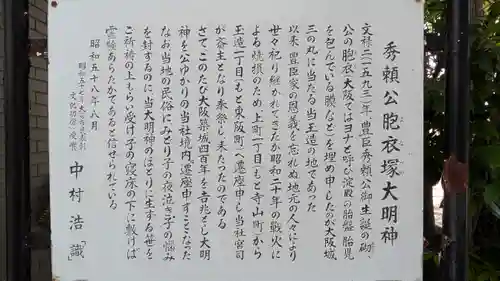 秀頼公胞衣塚大明神
文禄二(一五九三)年、豊臣秀頼公御生誕の砌、
公の胞衣(大阪ではヨナと呼び淀殿の胎盤胎児
を包んでいる膜など)を埋め申したのが大阪城
三の丸に当たる当玉造の地であった
以来、豊臣家の恩義を忘れぬ地元の人々により
世々祀り継がれてきたが昭和二十年の戦火に
よる焼損のため、上町一丁目(もと寺山町)から
玉造一丁目(もと東阪町)へ遷座申し当社宮司
が斎主となり奉祭し来たったのである
さてこのたび大阪築城四百年を吉兆とし大明
神を公ゆかりの当社境内へ遷座申すことなった
なお、当地の民俗にみどり子の夜泣き、子の悩み
を封するのに、当大明神のほとりに生ずる笹を
ご祈祷の上もらい受け子の寝床の下に敷けば
霊験あらたかであると信ぜられている
昭和五十八年八月
中村浩「識」